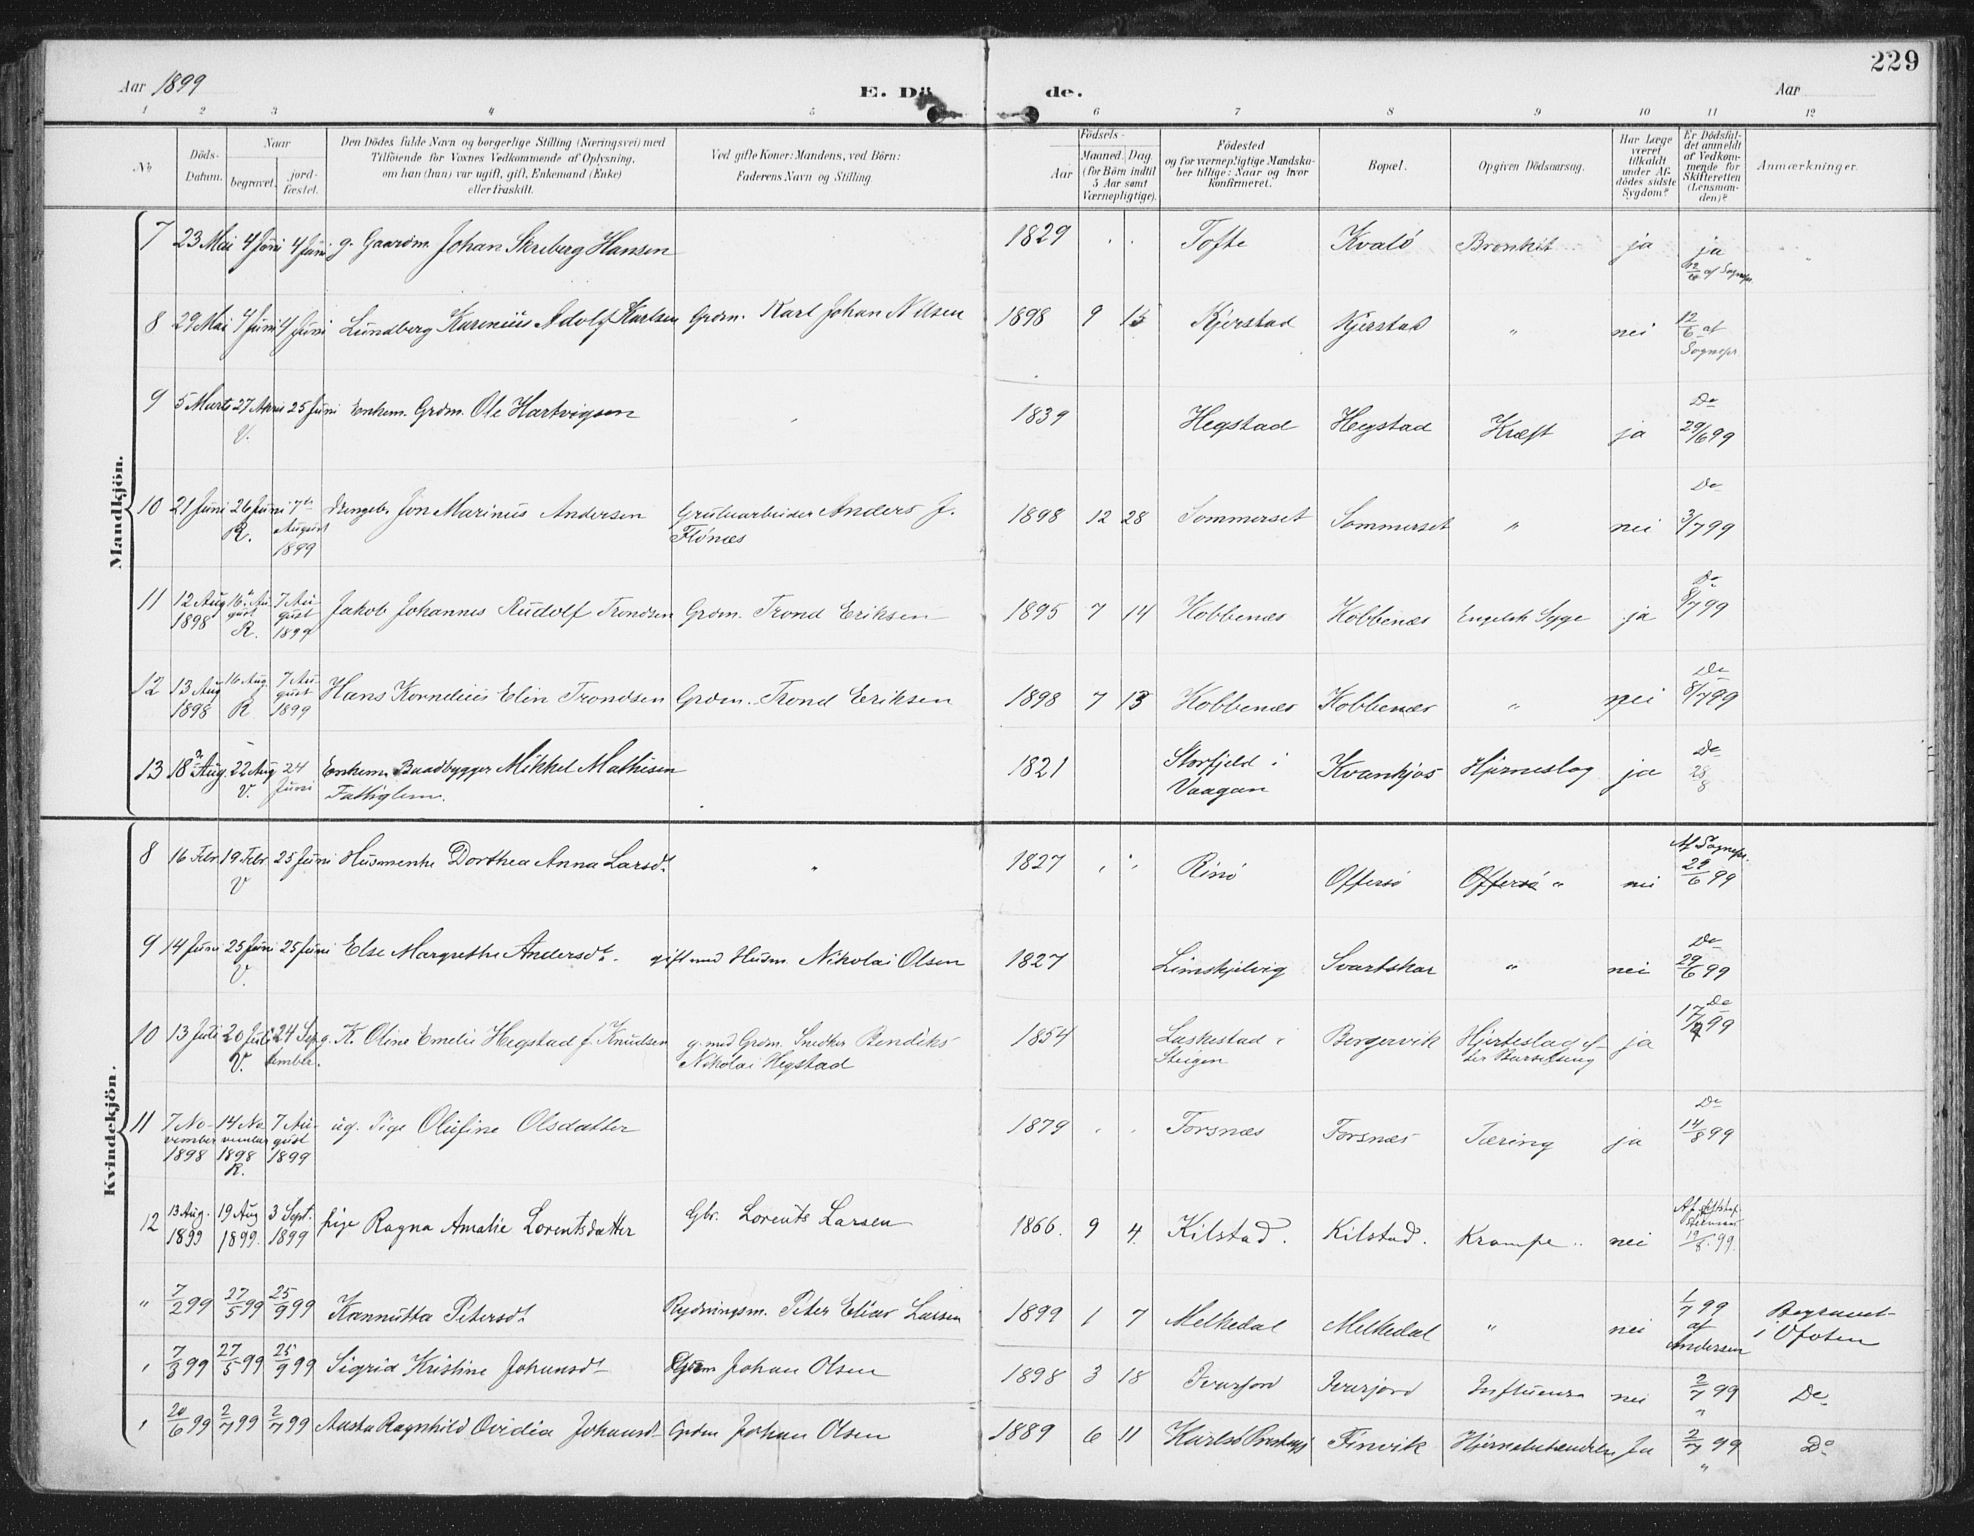 229
Aar 1899
E. Dö de.
Aar
1 2 3 4 5 6 7 8 9 10 11 12
No
Döds-Datum.
Naar
begravet.
jordfæstet.
Den Dödes fulde Navn og borgerlige Stilling (Næringsvei) med
Tilföiende for Voxnes Vedkommende af Oplysning,
om han (hun) var ugift, gift, Enkemand (Enke)
eller fraskilt.
Ved gifte Koner: Mandens, ved Börn:
Faderens Navn og Stilling
Födsels-
Aar
Maaned. Dag
(for Börn indtil
5 Aar samt
Værnepligtige).
Födested
og for værnepligtige Mandska-
ber tillige: Naar og hvor
konfirmeret.
Bopæl.
Opgiven Dödsaarsag.
Har Læge
været
tilkaldt
under Af-
dödes sidste
Sygdom?
Er Dödsfal-
det anmeldt
af Vedkom-
mende for
Skifteretten
(Lensman-
den)?
Anmærkninger.
Mandkjön.
7 23 Mai 4 Juni 4 Juni g. Gaardm. Johan Skriberg Hansen 1829 Tofte Kvalö Bronkit ja ja
12/6 af Sognepr.
8 29 Mai 4 Juni 4 Juni Lundberg Karenius Adolf Karlsen Grdm. Karl Johan Nilsen 1898 9 15 Kjerstad Kjerstad " nei 12/6 af
Sognepr.
9 5 Marts 27 April 25 Juni Enkem. Grdm. Ole Hartvigsen 1839 Hegstad Hegstad Kræft ja Do 29/6 99
V.
10 21 Juni 26 Juni 7de August 1899 Drengeb. Jon Marinus Andersen Grubearbeider Anders J. Flönæs 1898 12 28 Sommerset Sommerset " nei Do 3/7 99
R.
11 12 Aug 1898 16 August R. 7 August 1899 Jakob Johannes Rudolf Trondsen Grdm. Trond Eriksen 1895 7 14 Kobbenæs Kobbenæs Engelsk Syge ja Do 8/7 99
12 13 Aug 1898 16 Aug. R 7 August 1899 Hans Kornelius Elin Trondsen Grdm. Trond Eriksen 1898 7 13 Kobbenæs Kobbenæs " nei Do 8/7 99
13 18 Aug. 22 Aug V. 24 Juni Enkem. Baadbygger Mikkel Mathisen 1821 Storfjeld i Vaagan Kvankjos Hjerneslag ja Do 28/8
Fattiglem.
Kvindekjön.
8 16 Febr 19 Febr V 25 Juni Husmenke Dorthea Anna Larsdt " 1827 Rinö Offersö Offersö " nei Af Sognepr. 29/6 99
9 14 Juni 25 Juni V. 25 Juni Else Margrethe Andersdt. gift med Husm. Nikolai Olsen 1827 Limskjelvig Svartskar " nei Do 29/6 99
10 13 Juli 20 Juli V. 24 September g. K. Oline Emelie Hegstad f. Knudsen g. med Grdm. Snedker Bendiks Nikolai Hegstad 1854 Laskestad i Steigen Bergsvik Hjerteslag efter Barselseng ja Do 17/7 99
11 7 November 1898 14 November 1898 R. 7 August 1899 ug. Pige Olufine Olsdatter 1879 Forsnæs Forsnæs Tæring ja Do 14/8 99
12 13 Aug. 1899 19 Aug 1899. 3 Sept. 1899 pige Ragna Amalie Lorentsdatter Gbr. Lorents Larsen 1866. 9 4. Kilstad. Kilstad. Krampe nei 19/8 99.
" 7/2 99 27/5 99 25/9 99 Kannutta Petersdt Rydningsm. Peter Elias Larsen 1899 1 7 Melkedal Melkedal " nei 1/7 99 af Andersen Begravet i Ofoten
" 7/3 99 27/5 99 25/9 99 Sigrid Kristine Johansdt Grdm Johan Olsen 1898 3 18 Ivarjord Ivarjord Influensa nei 2/7 99 " Do
" 20/6 99 2/7 99 2/7 99 Aasta Ragnhild Ovidia Johansdt Grdm Johan Olsen 1889 6 11 Karlsö Prestegj Finvik Hjernebetændelse Ja 2/7 99 " Do